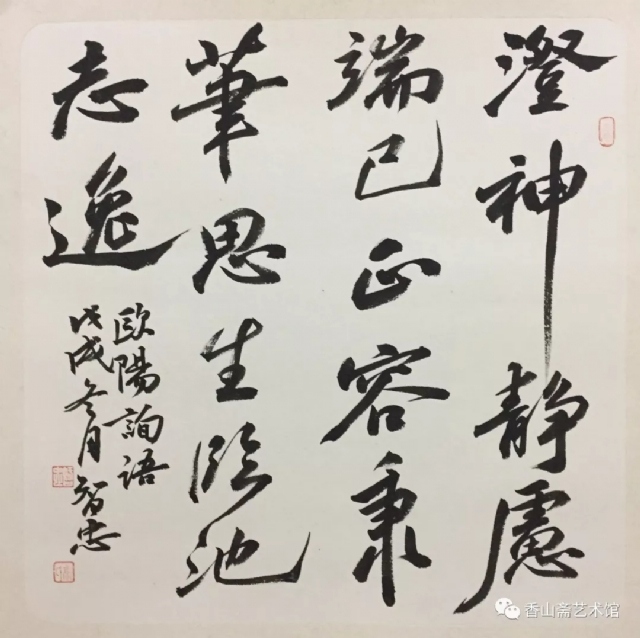 澄神静慮
端己正容秉
筆思生臨池
志逸
歐陽詢語
戊戌冬月智忠
香山斋艺术馆